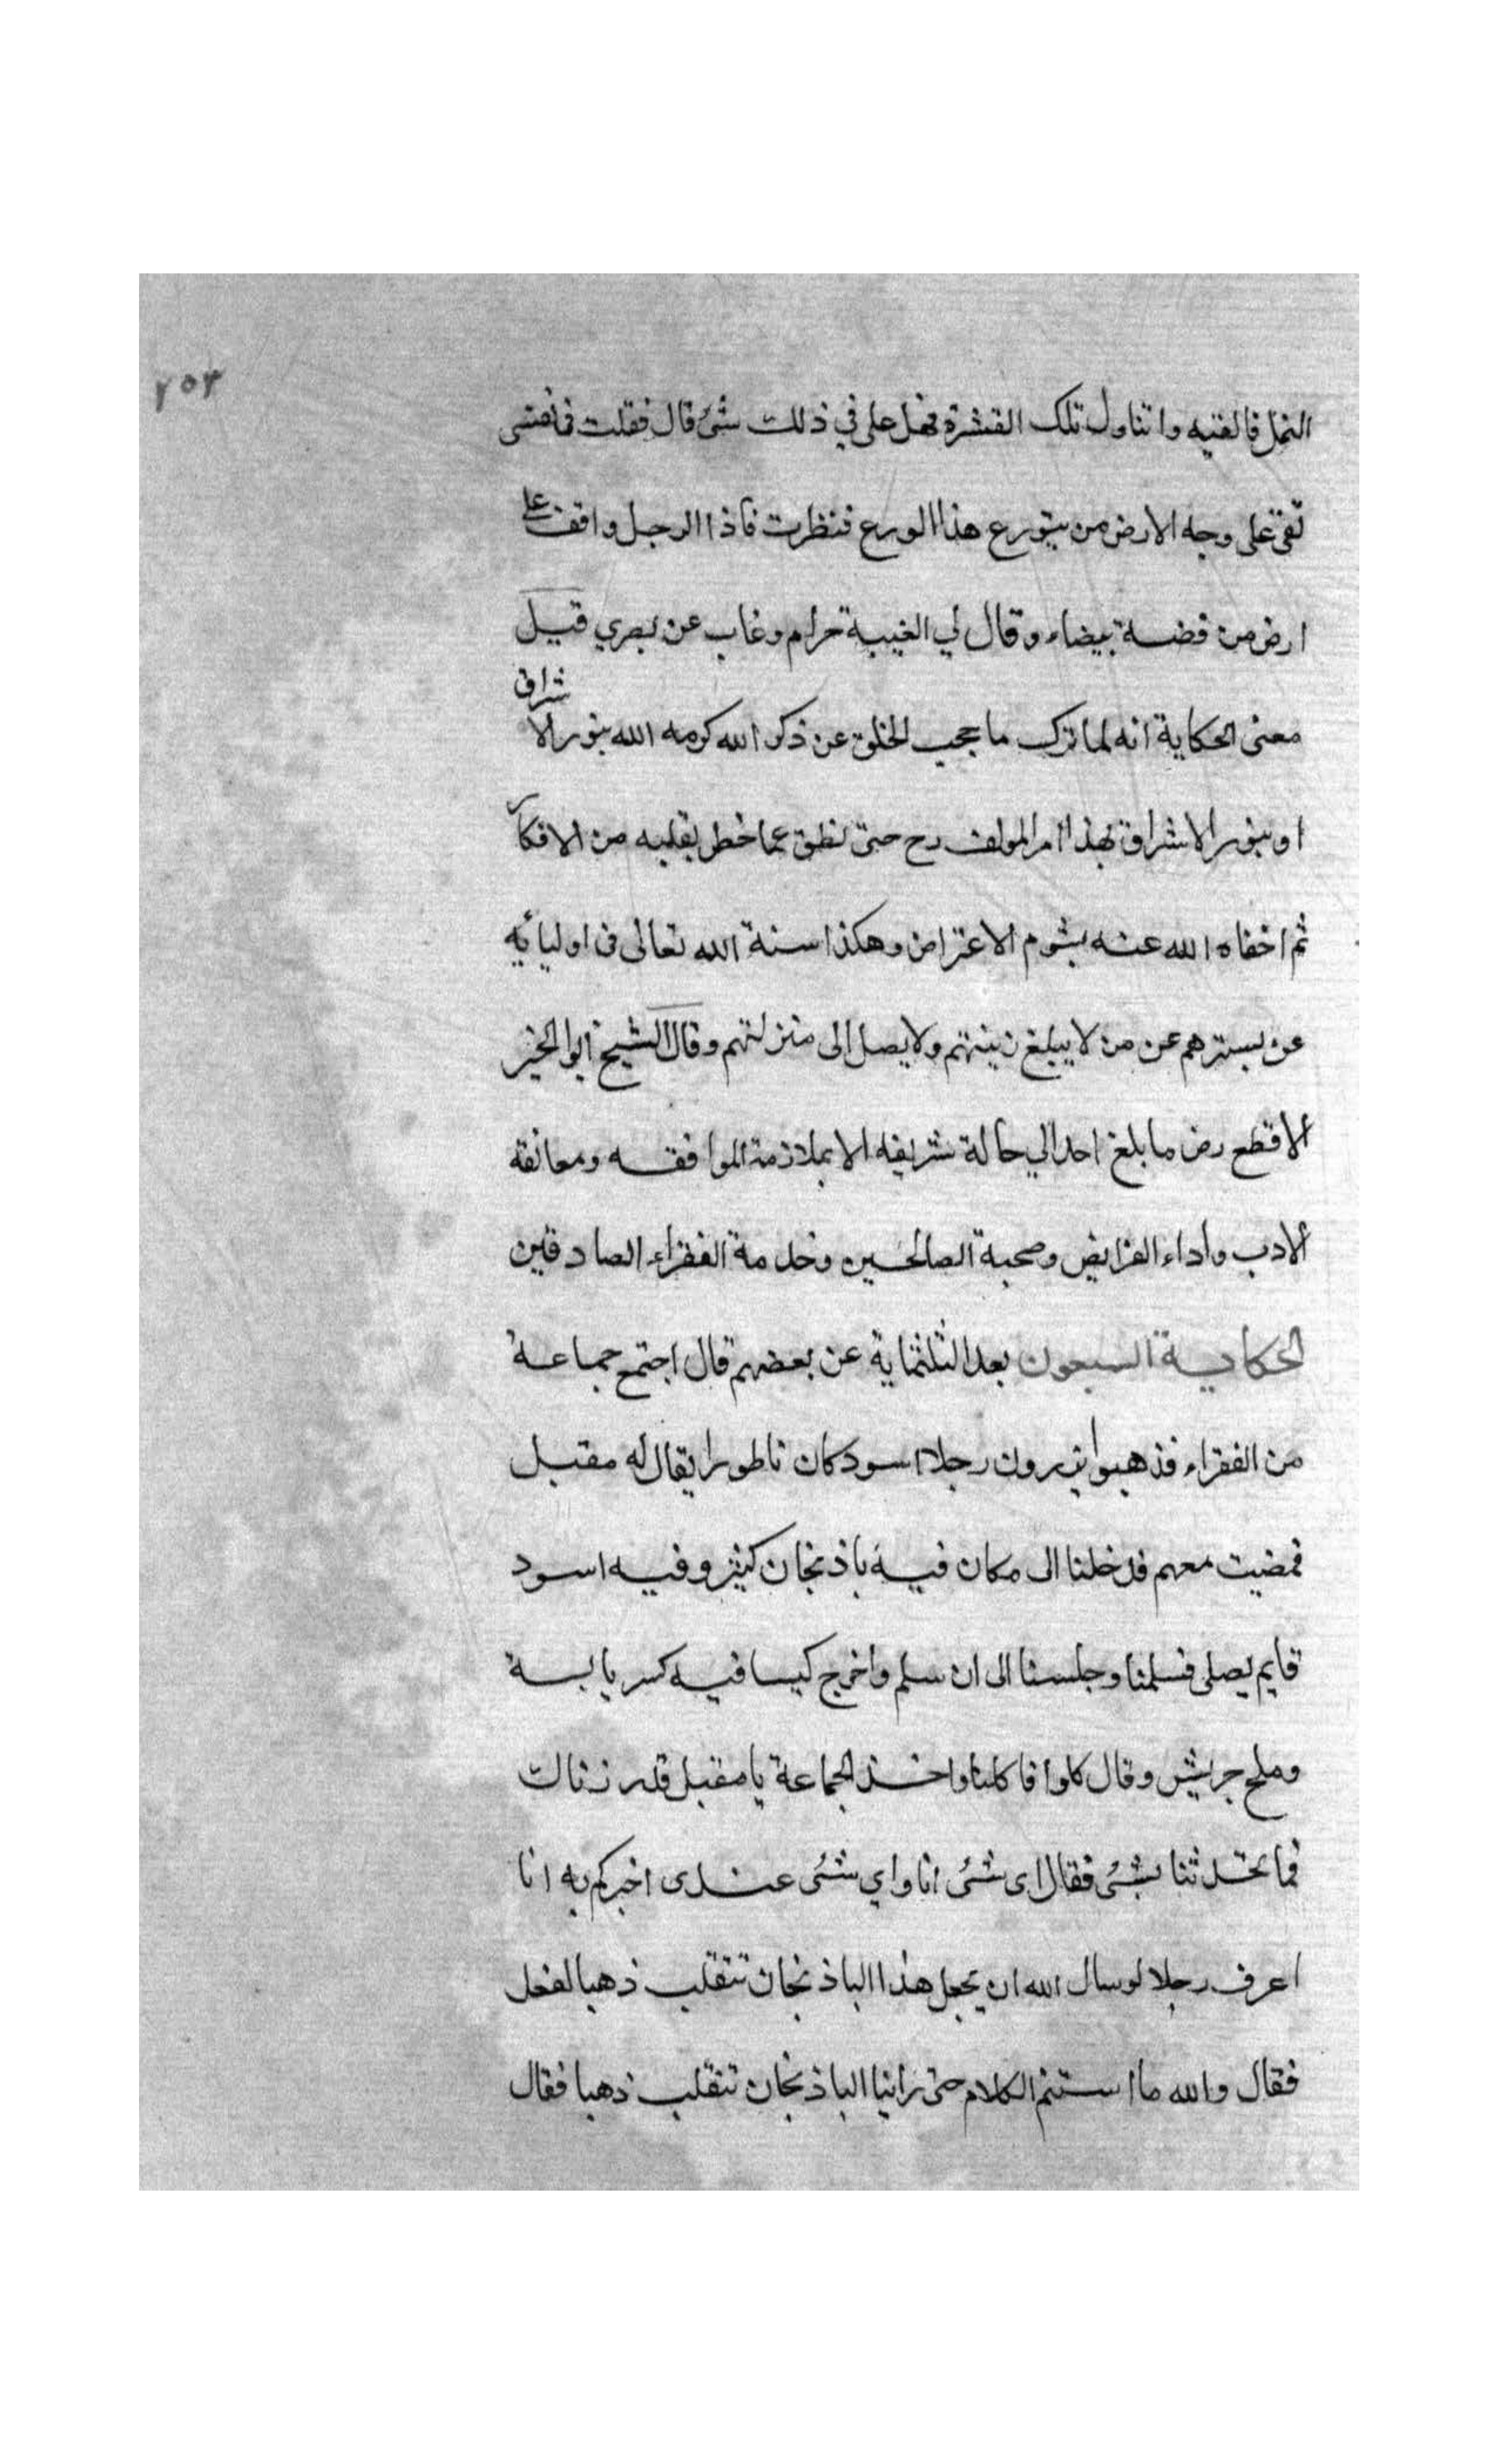 ٢٥٣
النمل فالقيه واتناول تلك القشرة فهل على في ذلك شئ قال فقلت في نفسى
بقى على وجه الارض من يتورع هذا الورع فنظرت فاذا الرجل واقف على
ارض من فضة بيضاء وقال لي الغيبة حرام وغاب عن بصري قيل
معنى الحكاية انه لما ترك ما يحجب الخلق عن ذكر الله كرمه الله بنور الاشراق
او بنور الاشراق بهذا امر المولف رح حتى نطق عما خطر بقلبه من الافكار
ثم اخفاه الله عنه بشوم الاعتراض وهكذا سنة الله تعالى فى اوليائه
عن يسترهم عن من لا يبلغ زينتهم ولا يصل الى منزلتهم وقال الشيخ ابو الخير
الاقطع رض ما بلغ احد الي حالة شريفه الا بملازمة الموافقه ومعانقة
الادب واداء الفرايض وصحبة الصالحين وخدمة الفقراء الصادقين
الحكاية السبعون بعد الثلثماية عن بعضهم قال اجتمع جماعة
من الفقراء فذهبوا يزورون رجلا اسود كان ناطورا يقال له مقبل
فمضيت معهم فدخلنا الى مكان فيه باذنجان كثير وفيه اسود
قايم يصلى فسلمنا وجلسنا الى ان سلم واخرج كيسا فيه كسر يابسة
وملح جريش وقال كلوا فاكلنا واخذ الجماعة يا مقبل قد زرناك
فما تحدثنا بشئ فقال اى شئ انا واي شئ عندى اخبركم به انا
اعرف رجلا لو سال الله ان يجعل هذا الباذنجان تنقلب ذهبا لفعل
فقال والله ما استتم الكلام حتى راينا الباذنجان تنقلب ذهبا فقال